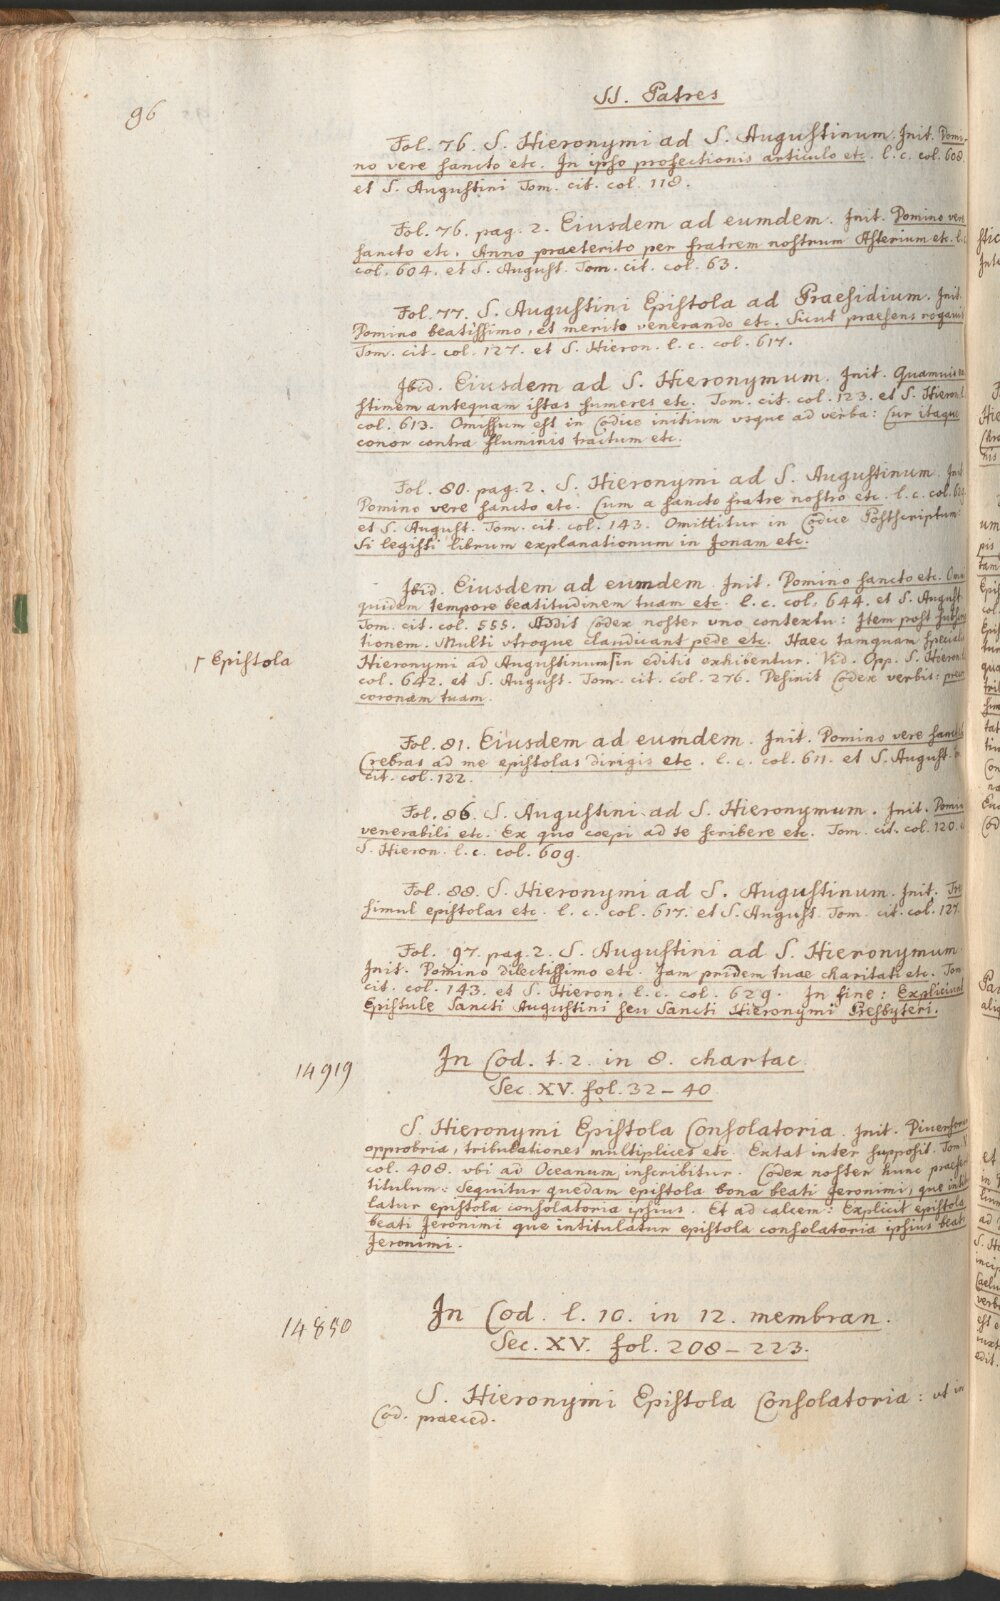 96
SS. Patres
Fol. 76. S. Hieronymi ad S. Augustinum. Init. Domi-
no vere sancto etc. In ipso profectionis articulo etc. l. c. col. 608.
et S. Augustini Tom. cit. col. 118.
Fol. 76. pag. 2. Eiusdem ad eumdem. Init. Domino vere
sancto etc. Anno praeterito per fratrem nostrum Asterium etc. l. c.
col. 604. et S. August. Tom. cit. col. 63.
Fol. 77. S. Augustini Epistola ad Praesidium. Init.
Domino beatissimo, et merito venerando etc. Sicut praesens rogaui
Tom. cit. col. 127. et S. Hieron. l. c. col. 617.
Ibid. Eiusdem ad S. Hieronymum. Init. Quamuis
stimem antequam istas sumeres etc. Tom. cit. col. 123. et S. Hieron.
col. 613. Omissum est in Codice initium vsque ad verba: Cur itaque
conor contra fluminis tractum etc.
Fol. 80. pag. 2. S. Hieronymi ad S. Augustinum. Init.
Domino vere sancto etc. Cum a sancto fratre nostro etc. l. c. col.
et S. August. Tom. cit. col. 143. Omittitur in Codice Postscriptum:
Si legisti librum explanationum in Jonam etc.
Ibid. Eiusdem ad eumdem. Init. Domino sancto etc. Omni
quidem tempore beatitudinem tuam etc. l. c. col. 644. et S. August.
Tom. cit. col. 555. Addit Codex noster vno contextu: Item post
tionem. Multi vtroque claudicant pede etc. Haec tamquam specialis
┌ Epistola
Hieronymi ad Augustinum ┌ in editis exhibentur. Vid. Opp. S. Hieron.
col. 642. et S. August. Tom. cit. col. 276. Desinit Codex verbis:
coronam tuam.
Fol. 81. Eiusdem ad eumdem. Init. Domino vere sancto
Crebras ad me epistolas dirigis etc. l. c. col. 611. et S. August.
cit. col. 122.
Fol. 86. S. Augustini ad S. Hieronymum. Init. Domino
venerabili etc. Ex quo coepi ad te scribere etc. Tom. cit. col. 120.
S. Hieron. l. c. col. 609.
Fol. 88. S. Hieronymi ad S. Augustinum. Init. Tres
simul epistolas etc. l. c. col. 617. et S. August. Tom. cit. col. 127.
Fol. 97. pag. 2. S. Augustini ad S. Hieronymum.
Init. Domino dilectissimo etc. Jam pridem tuae charitati etc. Tom.
cit. col. 143. et S. Hieron. l. c. col. 629. In fine: Expliciunt
Epistule Sancti Augustini seu Sancti Hieronymi Presbyteri.
14919
In Cod. t. 2. in 8. chartac.
Sec. XV. fol. 32 – 40
S. Hieronymi Epistola Consolatoria. Init. Diuersorum
opprobria, tribulationes multiplices etc. Extat inter supposit. Tom. V
col. 408. vbi ad Oceanum inscribitur. Codex noster hunc praefert
titulum: Sequitur quedam epistola bona beati Jeronimi, que intitu
latur epistola consolatoria ipsius. Et ad calcem: Explicit epistola
beati Jeronimi que intitulatur epistola consolatoria ipsius beati
Jeronimi.
14850
In Cod. l. 10. in 12. membran.
Sec. XV. fol. 208 – 223.
S. Hieronymi Epistola Consolatoria: vt in
Cod. praeced.